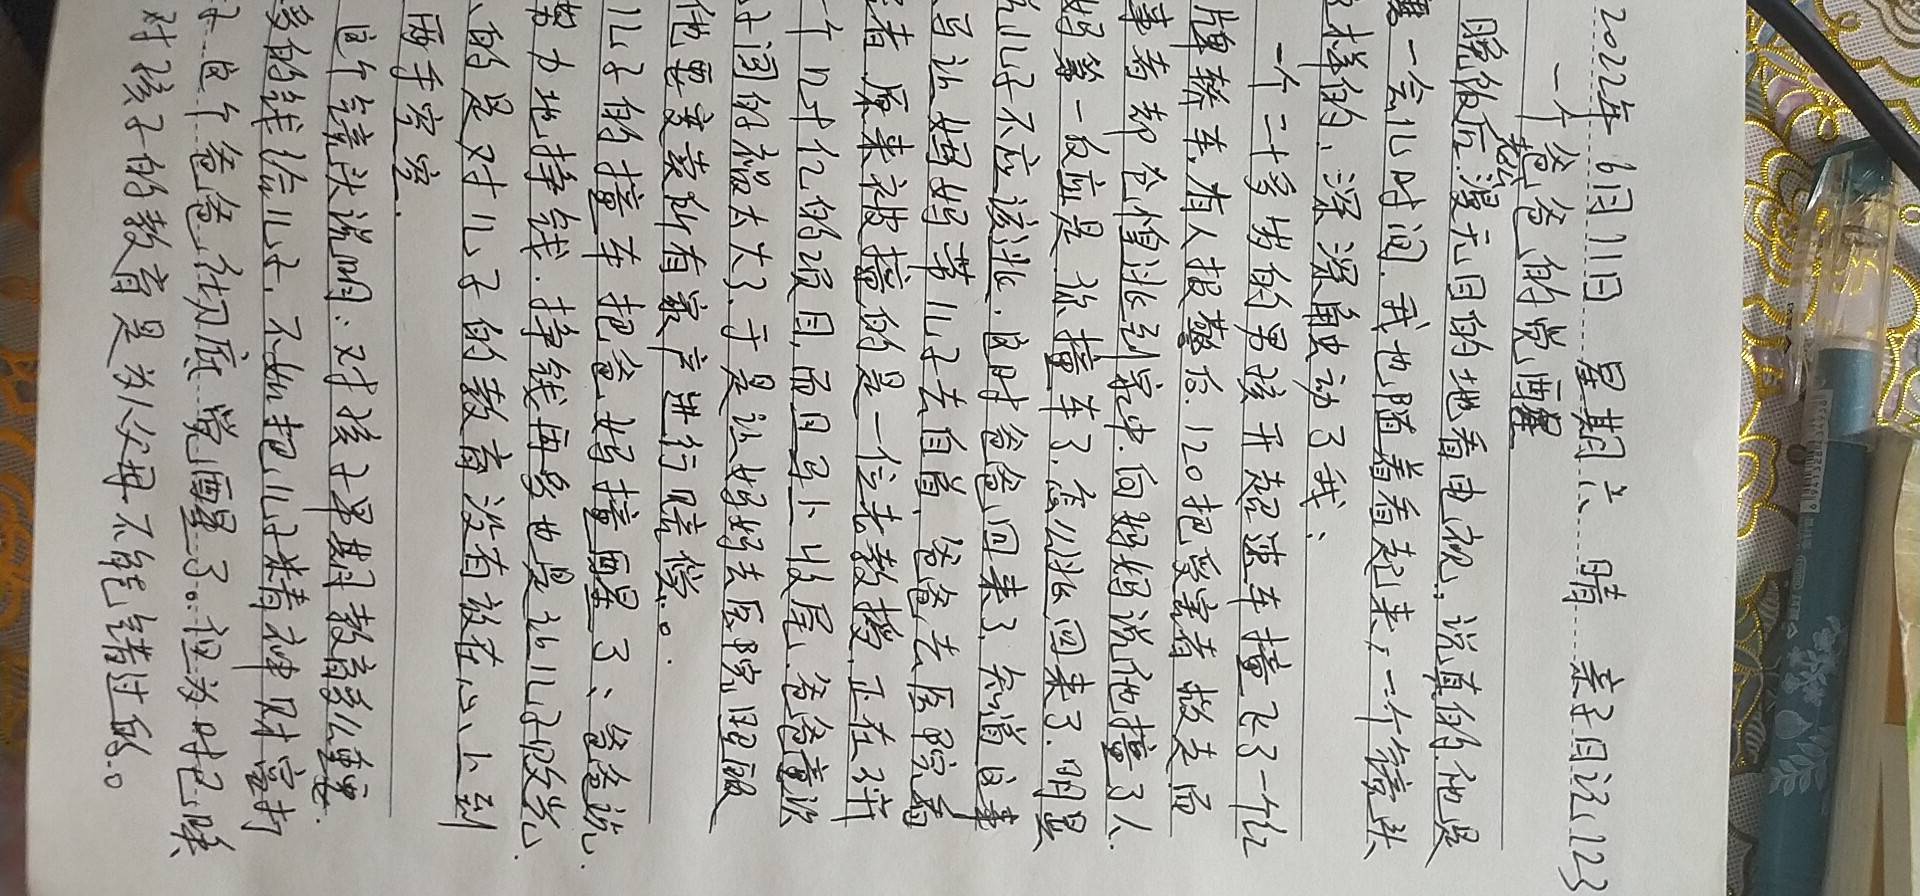 2022年6月11日 星期六 晴 亲子日记123
一个爸爸的觉醒
晚饭后,漫无目的地看起电视,说真的,他是
一会儿时间,我也随着看起来,一个镜头
样的,深深触动了我:
一个二十多岁的男孩开超速车撞飞了一个红
牌轿车,有人报警后,120把受害者救走而
事者却仓惶逃到家中,向妈妈说他撞了人
妈第一反应是,你撞车了,怎么逃回来了,明是
儿子不应该逃,这时爸爸回来了,知道这事
马让妈妈带儿子去自首,爸爸去医院看
者,原来被撞的是一位老教授,正在研
个几十亿的项目,而且马上收尾,爸爸意识
子闯的祸太大了,于是让妈妈去医院里服
他要变卖所有家产进行赔偿。
儿子的撞车把爸妈撞醒了、爸爸说,
努力地挣钱,挣钱再多也是让儿子败光,
的是对儿子的教育没有放在心上到
两手空空,
这个镜头说明:对孩子早期教育多么重要,
多的钱给儿子,不如把儿子精神财富打
子,这个爸爸彻底觉醒了。但为时已晚
对孩子的教育是为人父母不能错过的。